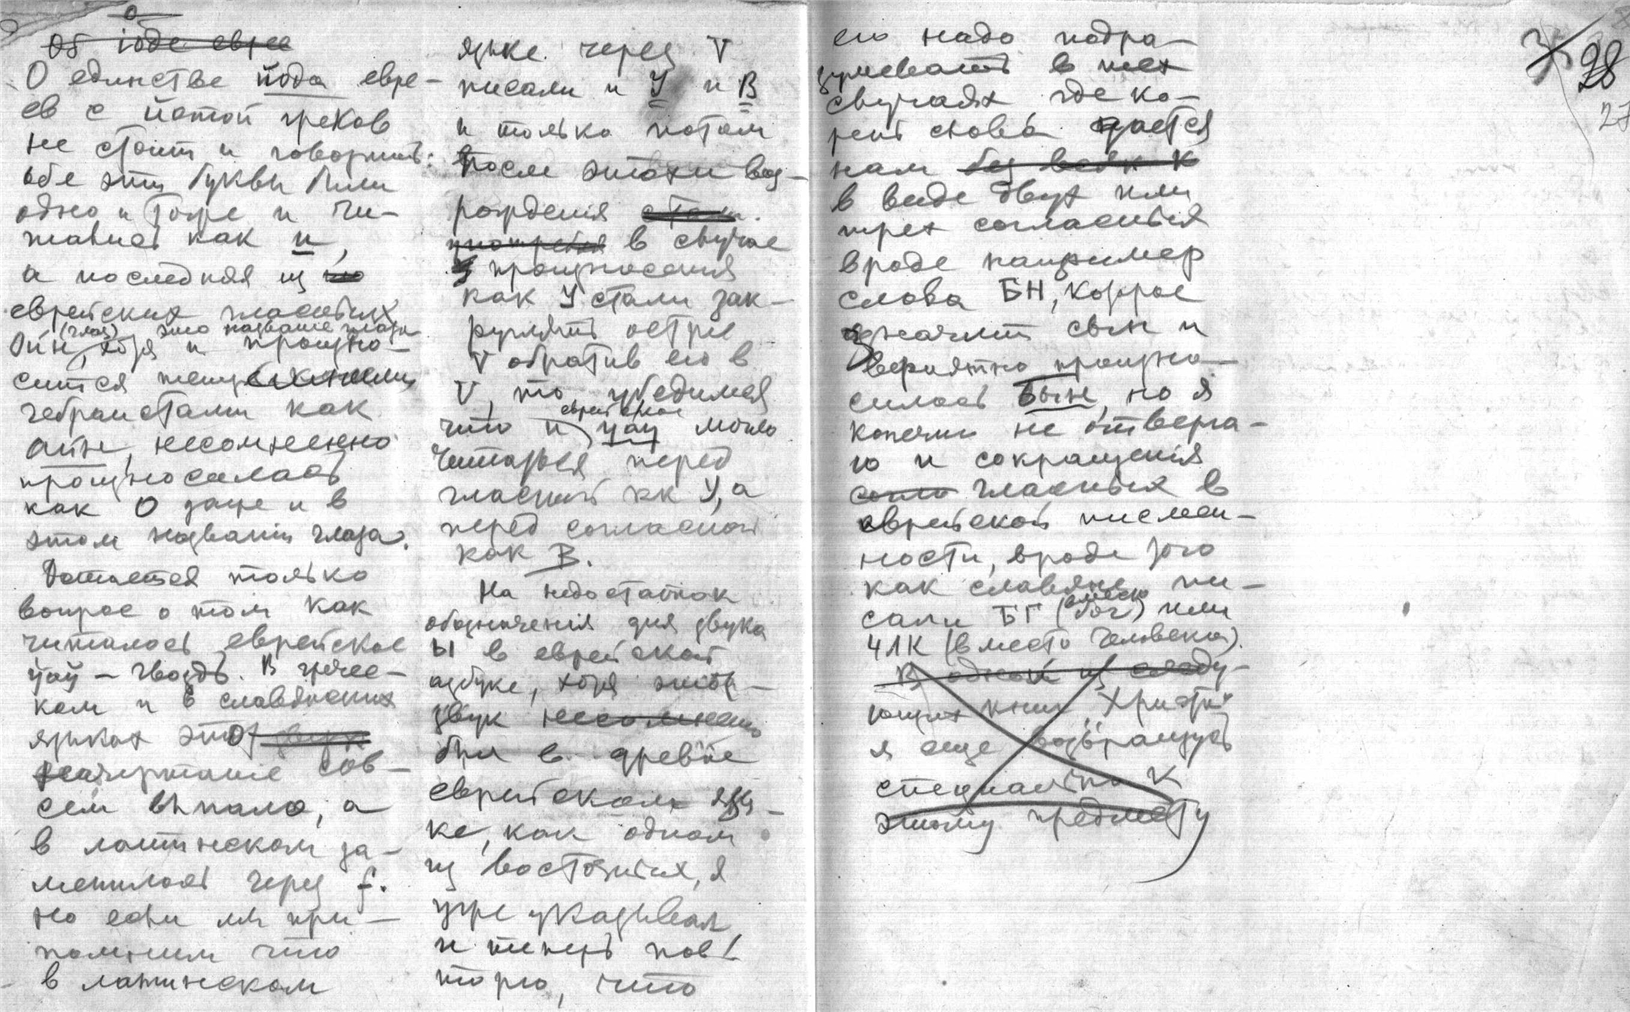 Об іоде еврее
О единстве йода евре-
ев с йотой греков
не стоит и говорить:
обе эти буквы были
одно и тоже и чи-
тались как и,
а последняя из
еврейских гласных
(глаз) это название глаза
Оин, хотя и произно-
сится
гебраистами как
аин, несомненно
произносилась
как О даже и в
этом названіи глаза.
Остается только
вопрос о том как
читалось еврейское
уау – гвоздь. В гречес-
ком и в славянских
языках это звук
начертаніе сов-
сем выпало, а
в латинском за-
менилось через f.
Но если мы при-
помним что
в латинском
языке через V
писали и У и В
и только потом
после эпохи воз-
рождения стали
в случае
произношения
как У стали зак-
руглять острие
V обратив его в
V, то убедимся
еврейское
что и уау могло
читаться перед
гласной как У, а
перед согласной
как В.
На недостаток
обозначенія для звука
Ы в еврейской
азбуке, хотя этот
звук несомненно
был в древне
еврейском язы-
ке, как одном
из восточных, я
уже указывал
и теперь пов-
торю, что
его надо подра-
зумевать в тех
случаях где ко-
рень слова дается
нам без всяк к
в виде двух или
трех согласных
вроде например
слова БН, которое
значит сын и
вероятно произно-
силось бын, но я
конечно не отверга-
ю и сокращенія
гласных в
еврейской письмен-
ности, вроде того
как славяне пи-
вместо
сали БГ (бог) или
ЧЛК (вместо человека).
В одной из следу-
ющих книг "Христа"
я еще возвращусь
специально к
этому предмету
28
27